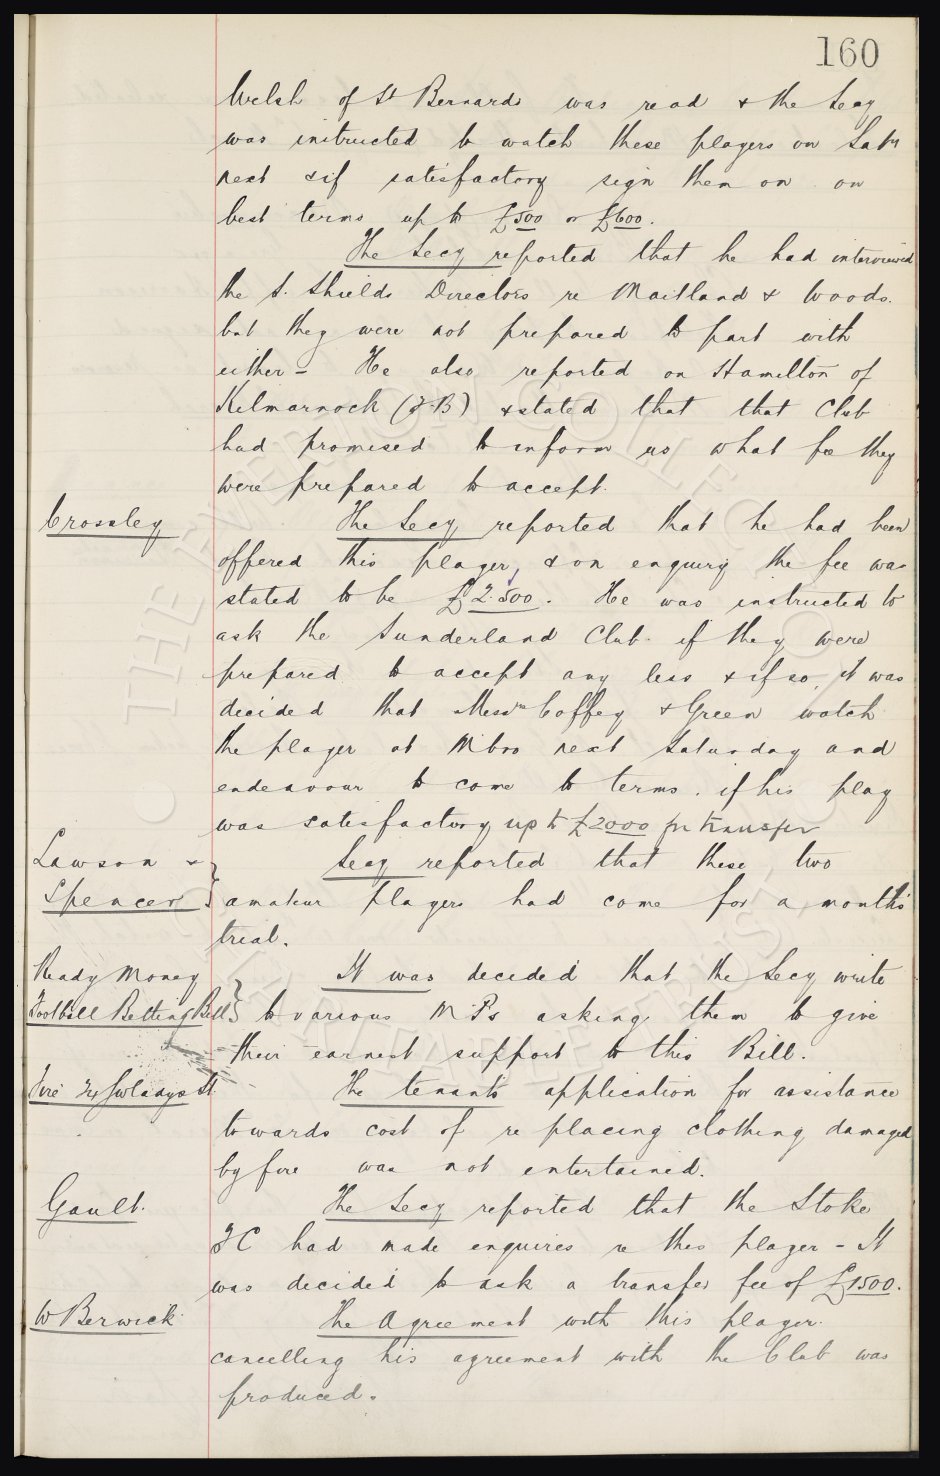 160
Welsh of St Bernards was read & the Secy
was instructed to watch these players on Saty
next & if satisfactory sign them on on
best terms up to £500 or £600.
The Secy reported that he had interviewed
the S. Shields Directors re Maitland & Woods.
but they were not prepared to part with
either - He also reported on Hamilton of
Kilmarnock (F.B) & stated that that Club
had promised to inform us what fee they
were prepared to accept.
Crossley
The Secy reported that he had been
offered this player, & on enquiry the fee was
stated to be £2.500. He was instructed to
ask the Sunderland Club if they were
prepared to accept any less & if so, it was
decided that Messrs Coffey & Green watch
the player at M'bro next Saturday and
endeavour to come to terms. if his play
was satisfactory up to £2000 for transfer
Lawson &
Spencer }
Secy reported that these two
amateur players had come for a month's
trial.
Ready Money
Football Betting Bill }
It was decided that the Secy write
to various M.P's asking them to give
their earnest support to this Bill.
Fire 34 Gwladys St
The tenant's application for assistance
towards cost of replacing clothing damaged
by fire was not entertained.
Gault.
The Secy reported that the Stoke
FC had made enquires re this player - It
was decided to ask a transfer fee of £1500.
W Berwick
The Agreement with this player
cancelling his agreement with the Club was
produced.
THE EVERTON COLLECTION
CHARITABLE TRUST